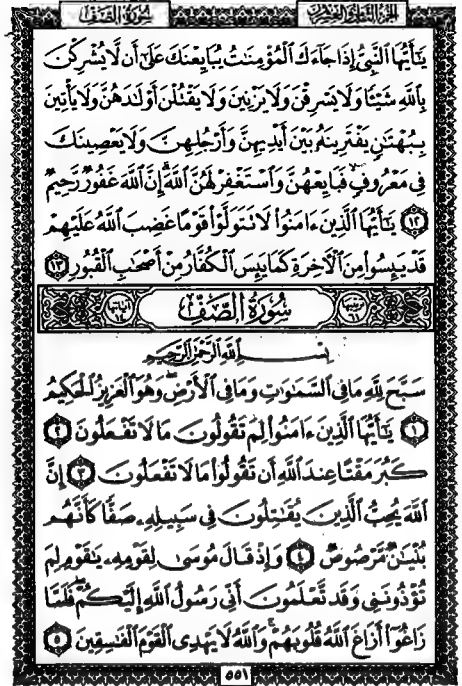 سُورَةُ الصَّفِّ الجُزْءُ الثَّامِنُ وَالعِشْرُونَ
يَٰٓأَيُّهَا ٱلنَّبِىُّ إِذَا جَآءَكَ ٱلْمُؤْمِنَٰتُ يُبَايِعْنَكَ عَلَىٰٓ أَن لَّا يُشْرِكْنَ
بِٱللَّهِ شَيْـًٔا وَلَا يَسْرِقْنَ وَلَا يَزْنِينَ وَلَا يَقْتُلْنَ أَوْلَٰدَهُنَّ وَلَا يَأْتِينَ
بِبُهْتَٰنٍ يَفْتَرِينَهُۥ بَيْنَ أَيْدِيهِنَّ وَأَرْجُلِهِنَّ وَلَا يَعْصِينَكَ
فِى مَعْرُوفٍ فَبَايِعْهُنَّ وَٱسْتَغْفِرْ لَهُنَّ ٱللَّهَ إِنَّ ٱللَّهَ غَفُورٌ رَّحِيمٌ
١٢ يَٰٓأَيُّهَا ٱلَّذِينَ ءَامَنُوا۟ لَا تَتَوَلَّوْا۟ قَوْمًا غَضِبَ ٱللَّهُ عَلَيْهِمْ
قَدْ يَئِسُوا۟ مِنَ ٱلْءَاخِرَةِ كَمَا يَئِسَ ٱلْكُفَّارُ مِنْ أَصْحَٰبِ ٱلْقُبُورِ ١٣
ترتيبها ٦١ سُورَةُ الصَّفِّ آياتها ١٤
بِسْمِ ٱللَّهِ ٱلرَّحْمَٰنِ ٱلرَّحِيمِ
سَبَّحَ لِلَّهِ مَا فِى ٱلسَّمَٰوَٰتِ وَمَا فِى ٱلْأَرْضِ وَهُوَ ٱلْعَزِيزُ ٱلْحَكِيمُ
١ يَٰٓأَيُّهَا ٱلَّذِينَ ءَامَنُوا۟ لِمَ تَقُولُونَ مَا لَا تَفْعَلُونَ ٢
كَبُرَ مَقْتًا عِندَ ٱللَّهِ أَن تَقُولُوا۟ مَا لَا تَفْعَلُونَ ٣ إِنَّ
ٱللَّهَ يُحِبُّ ٱلَّذِينَ يُقَٰتِلُونَ فِى سَبِيلِهِۦ صَفًّا كَأَنَّهُم
بُنْيَٰنٌ مَّرْصُوصٌ ٤ وَإِذْ قَالَ مُوسَىٰ لِقَوْمِهِۦ يَٰقَوْمِ لِمَ
تُؤْذُونَنِى وَقَد تَّعْلَمُونَ أَنِّى رَسُولُ ٱللَّهِ إِلَيْكُمْ فَلَمَّا
زَاغُوٓا۟ أَزَاغَ ٱللَّهُ قُلُوبَهُمْ وَٱللَّهُ لَا يَهْدِى ٱلْقَوْمَ ٱلْفَٰسِقِينَ ٥
٥٥١